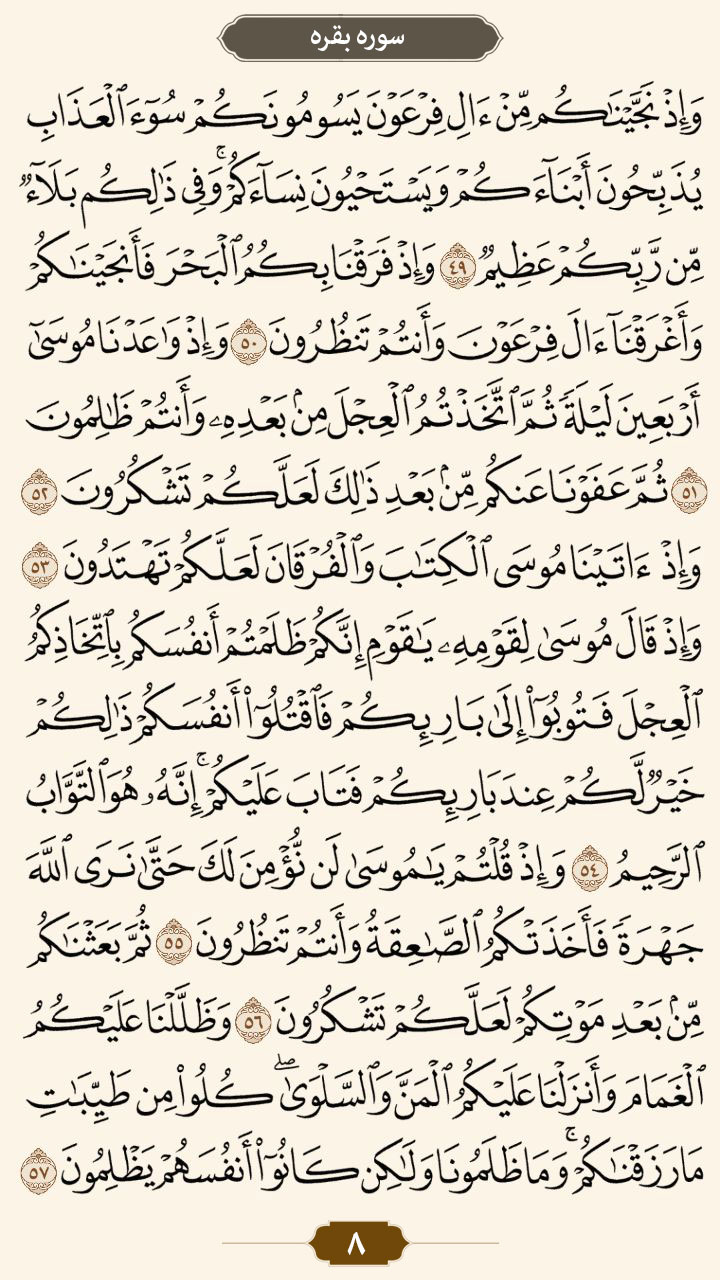 سوره بقره
وَإِذْ نَجَّيْنَٰكُم مِّنْ ءَالِ فِرْعَوْنَ يَسُومُونَكُمْ سُوٓءَ ٱلْعَذَابِ
يُذَبِّحُونَ أَبْنَآءَكُمْ وَيَسْتَحْيُونَ نِسَآءَكُمْ ۚ وَفِى ذَٰلِكُم بَلَآءٌ
مِّن رَّبِّكُمْ عَظِيمٌ ٤٩ وَإِذْ فَرَقْنَا بِكُمُ ٱلْبَحْرَ فَأَنجَيْنَٰكُمْ
وَأَغْرَقْنَآ ءَالَ فِرْعَوْنَ وَأَنتُمْ تَنظُرُونَ ٥٠ وَإِذْ وَٰعَدْنَا مُوسَىٰٓ
أَرْبَعِينَ لَيْلَةً ثُمَّ ٱتَّخَذْتُمُ ٱلْعِجْلَ مِنۢ بَعْدِهِۦ وَأَنتُمْ ظَٰلِمُونَ
٥١ ثُمَّ عَفَوْنَا عَنكُم مِّنۢ بَعْدِ ذَٰلِكَ لَعَلَّكُمْ تَشْكُرُونَ ٥٢
وَإِذْ ءَاتَيْنَا مُوسَى ٱلْكِتَٰبَ وَٱلْفُرْقَانَ لَعَلَّكُمْ تَهْتَدُونَ ٥٣
وَإِذْ قَالَ مُوسَىٰ لِقَوْمِهِۦ يَٰقَوْمِ إِنَّكُمْ ظَلَمْتُمْ أَنفُسَكُم بِٱتِّخَاذِكُمُ
ٱلْعِجْلَ فَتُوبُوٓا۟ إِلَىٰ بَارِئِكُمْ فَٱقْتُلُوٓا۟ أَنفُسَكُمْ ذَٰلِكُمْ
خَيْرٌ لَّكُمْ عِندَ بَارِئِكُمْ فَتَابَ عَلَيْكُمْ ۚ إِنَّهُۥ هُوَ ٱلتَّوَّابُ
ٱلرَّحِيمُ ٥٤ وَإِذْ قُلْتُمْ يَٰمُوسَىٰ لَن نُّؤْمِنَ لَكَ حَتَّىٰ نَرَى ٱللَّهَ
جَهْرَةً فَأَخَذَتْكُمُ ٱلصَّٰعِقَةُ وَأَنتُمْ تَنظُرُونَ ٥٥ ثُمَّ بَعَثْنَٰكُم
مِّنۢ بَعْدِ مَوْتِكُمْ لَعَلَّكُمْ تَشْكُرُونَ ٥٦ وَظَلَّلْنَا عَلَيْكُمُ
ٱلْغَمَامَ وَأَنزَلْنَا عَلَيْكُمُ ٱلْمَنَّ وَٱلسَّلْوَىٰ ۖ كُلُوا۟ مِن طَيِّبَٰتِ
مَا رَزَقْنَٰكُمْ ۚ وَمَا ظَلَمُونَا وَلَٰكِن كَانُوٓا۟ أَنفُسَهُمْ يَظْلِمُونَ ٥٧
٨